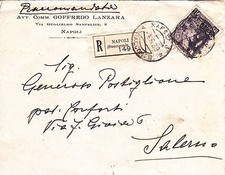 Raccomandata
Avv. Comm. GOFFREDO LANZARA
Via Guglielmo Sanfelice, 8
NAPOLI
R
NAPOLI
149
Sig.
Generoso Postiglione
Via
Salerno